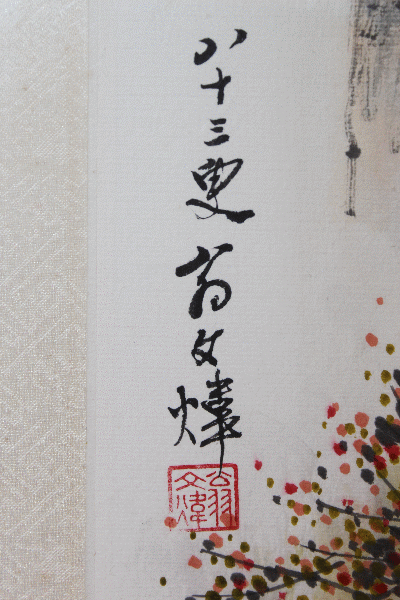 八十三叟翁文煒
翁文煒